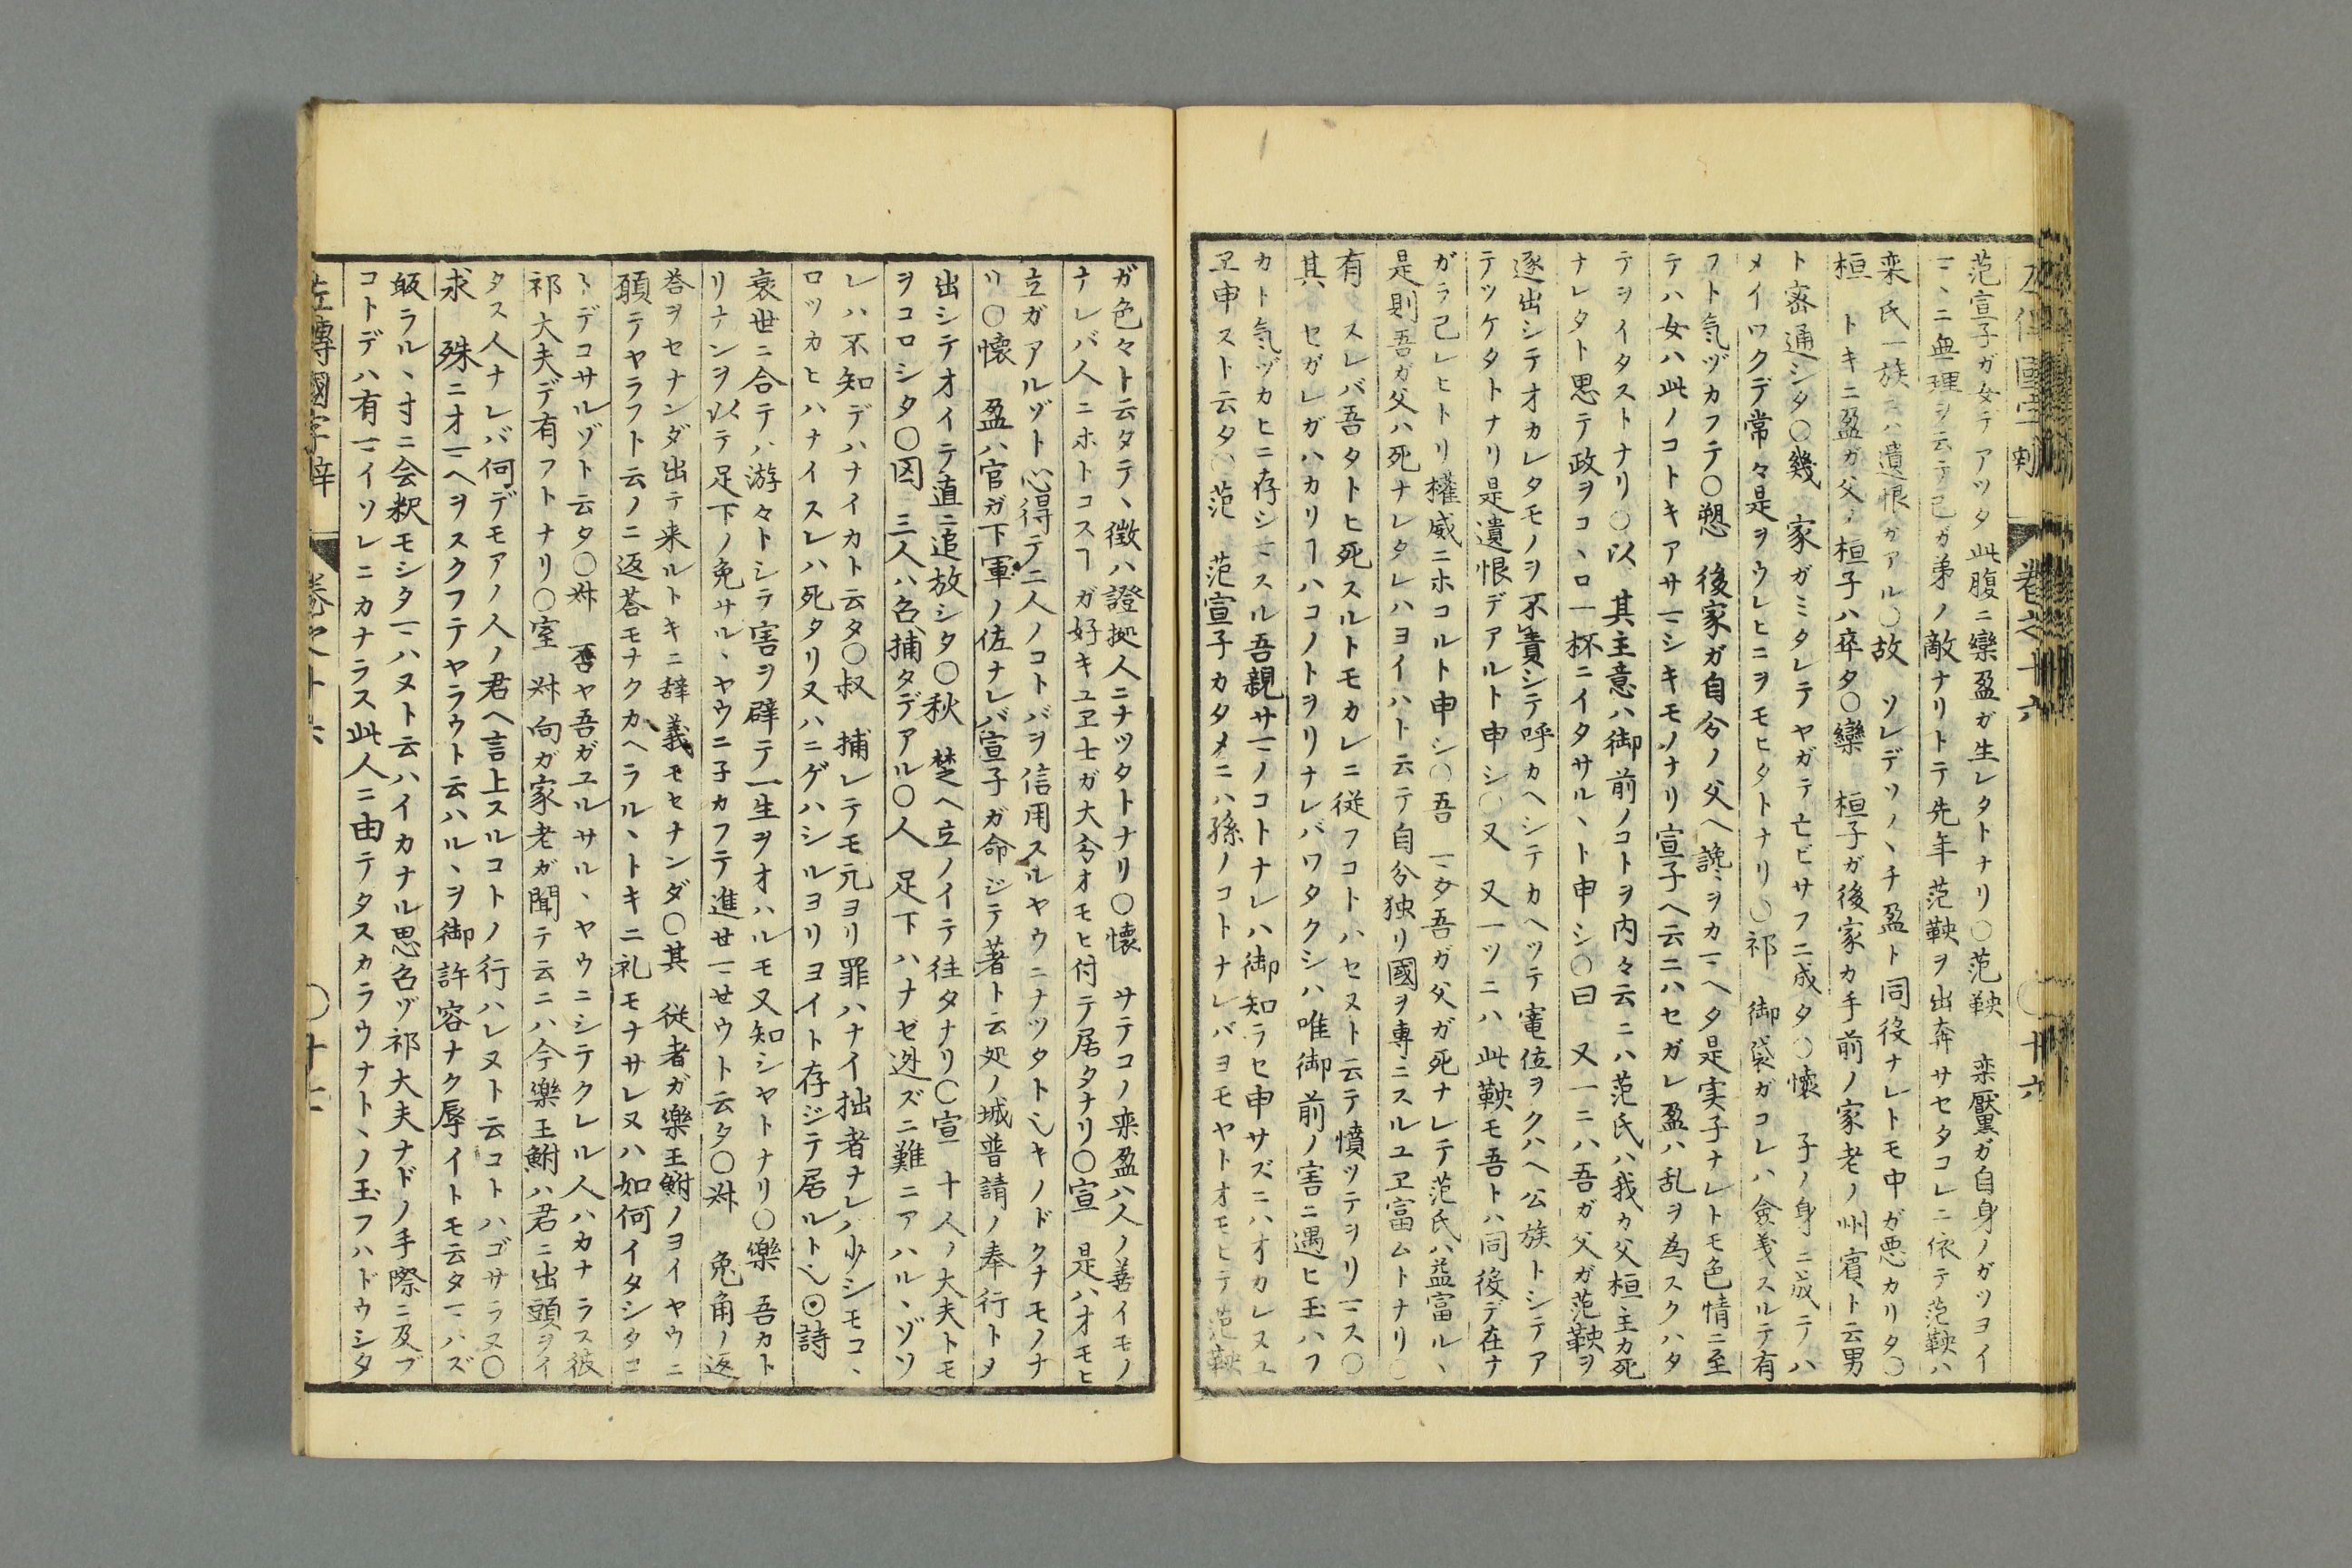 卷之十六
十六
范宣子ガ女デアツタ此腹ニ欒盈ガ生レタトナリ○范鞅　栾黶ガ自身ノガツヨイ
〆ニ無理ヲ云テ己ガ弟ノ敵ナリトテ先年范鞅ヲ出奔サセタコレニ依テ范鞅ハ
栾氏一族ニハ遺恨ガアル○故　ソレデソノヽチ盈ト同役ナレトモ中ガ悪カリタ○
桓　トキニ盈ガ父ノ桓子ハ卒タ○欒　桓子ガ後家カ手前ノ家老ノ州賓ト云男
ト密通シタ○幾　家ガミタレテヤガテ亡ビサフニ成タ○懐　子ノ身ニ成テハ
メイワクデ常々是ヲウレヒニヲモヒタトナリ○祁　御袋ガコレハ僉義スルテ有
フト気ヅカフテ○愬　後家ガ自分ノ父ヘ讒ヽヲカマヘタ是実子ナレトモ色情ニ至
テハ女ハ此ノコトキアサマシキモノナリ宣子ヘ云ニハセガレ盈ハ乱ヲ為スクハタ
テヲイタストナリ○以　其主意ハ御前ノコトヲ内々云ニハ范氏ハ我カ父桓主カ死
ナレタト思テ政ヲコヽロ一杯ニイタサルヽト申シ○曰　又一ニハ吾ガ父ガ范鞅ヲ
逐出シテオカレタモノヲ不責シテ呼カヘシテカヘツテ寵位ヲクハヘ公族トシテア
テツケタトナリ是遺恨デアルト申シ○又　又一ツニハ此鞅モ吾トハ同役デ在ナ
ガラ己レヒトリ權威ニホコルト申シ○吾　マタ吾ガ父ガ死ナレテ范氏ハ益富ルヽ
是則吾ガ父ハ死ナレタレハヨイハト云テ自分独リ國ヲ專ニスルユヱ富ムトナリ○
有　スレバ吾タトヒ死スルトモカレニ従フコトハセヌト云テ憤ツテヲリマス○
其　セガレガハカリヿハコノトヲリナレバワタクシハ唯御前ノ害ニ遇ヒ玉ハフ
カト気ヅカヒニ存シマスル吾親サマノコトナレハ御知ラセ申サズニハオカレヌユ
ヱ申スト云タ○范　范宣子カタメニハ孫ノコトナレバヨモヤトオモヒテ范鞅
ガ色々ト云タテヽ徴ハ證拠人ニナツタトナリ○懐　サテコノ栾盈ハ人ノ善イモノ
ナレバ人ニホトコスヿガ好キユヱ士ガ大分オモヒ付テ居タナリ○宣　是ハオモヒ
立ガアルゾト心得テ二人ノコトバヲ信用スルヤウニナツタト〆キノドクナモノナ
リ○懐　盈ハ官ガ下軍ノ佐ナレバ宣子ガ命ジテ著ト云処ノ城普請ノ奉行トメ
出シテオイテ直ニ追放シタ○秋　楚ヘ立ノイテ往タナリ○宣　十人ノ大夫トモ
ヲコロシタ○囚　三人ハ召捕タデアル○人　足下ハナゼ迯ズニ難ニアハルヽゾソ
レハ不知デハナイカト云タ○叔　捕レテモ元ヨリ罪ハナイ拙者ナレハ少シモコヽ
ロツカヒハナイスレハ死タリ又ハニゲハシルヨリヨイト存ジテ居ルト〆◎詩
衰世ニ合テハ游々トシテ害ヲ辟テ一生ヲオハルモ又知シヤトナリ○樂　吾カト
リナンヲ以テ足下ノ免サルヽヤウニ子カフテ進セマセウト云タ○叔　兔角ノ返
荅ヲセナンダ出テ来ルトキニ辞義モセナンダ○其　従者ガ樂王鮒ノヨイヤウニ
願テヤラフト云ノニ返荅モナクカヘラルヽトキニ礼モナサレヌハ如何イタシタコ
トデコサルゾト云タ○叔　否ヤ吾ガユルサルヽヤウニシテクレル人ハカナラス彼
祁大夫デ有フトナリ○室　叔向ガ家老ガ聞テ云ニハ今樂王鮒ハ君ニ出頭ヲイ
タス人ナレバ何デモアノ人ノ君ヘ言上スルコトノ行ハレヌト云コトハゴサラヌ○
求　殊ニオマヘヲスクフテヤラウト云ハルヽヲ御許容ナク辱イトモ云タマハズ
皈ラルヽ寸ニ会釈モシタマハヌト云ハイカナル思召ゾ祁大夫ナドノ手際ニ及ブ
コトデハ有マイソレニカナラス此人ニ由テタスカラウナトヽノ玉フハドウシタ
左傳國字辯
卷之十六
十七